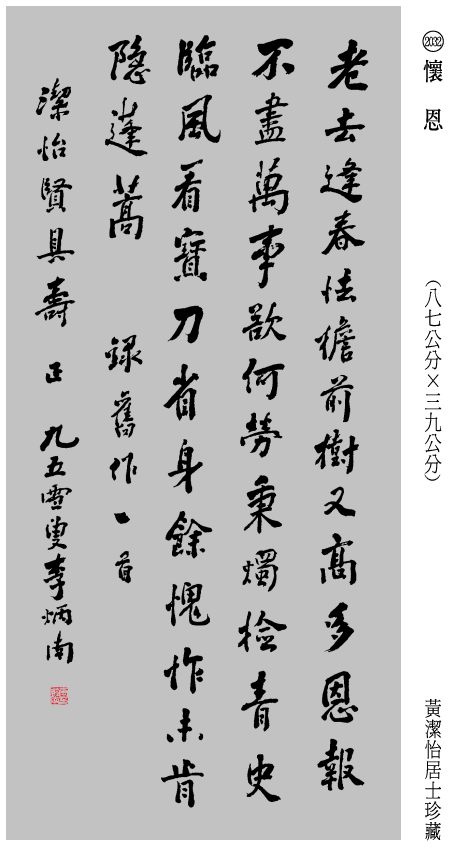 2032 懷恩
（八七公分×三九公分）
黃潔怡居士珍藏
老去逢春怯檐前樹又高多恩報
不盡萬事何勞秉燭檢青史
臨風看寶刀省身餘愧怍未肯
隱蓬蒿 錄舊作一首
潔怡賢具壽 正 九五雪叟李炳南